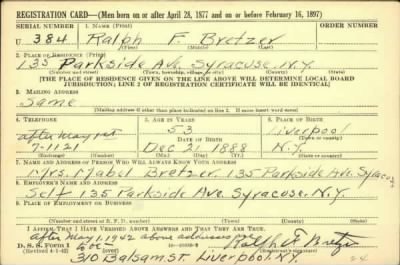 REGISTRATION CARD—(Men born on or after April 28, 1877 and on or before February 16, 1897)
SERIAL NUMBER 1. NAME (Print) ORDER NUMBER
U 384 Ralph F. Bretzer
(First) (Middle) (Last)
2. PLACE OF RESIDENCE (Print)
135 Parkside Ave. Syracuse. N.Y.
(Number and street) (Town, township, village, or city) (County) (State)
[THE PLACE OF RESIDENCE GIVEN ON THE LINE ABOVE WILL DETERMINE LOCAL BOARD
JURISDICTION; LINE 2 OF REGISTRATION CERTIFICATE WILL BE IDENTICAL]
3. MAILING ADDRESS
Same
[Mailing address if other than place indicated on line 2. If same insert word same]
4. TELEPHONE 5. AGE IN YEARS 6. PLACE OF BIRTH
after May 1st 53 Liverpool
DATE OF BIRTH (Town or county)
7-1121 Dec 21 1888 N.Y.
(Exchange) (Number) (Mo.) (Day) (Yr.) (State or country)
7. NAME AND ADDRESS OF PERSON WHO WILL ALWAYS KNOW YOUR ADDRESS
Mrs. Mabel Bretzer. 135 Parkside Ave. Syracuse
8. EMPLOYER'S NAME AND ADDRESS
Self 135 Parkside Ave. Syracuse. N.Y.
9. PLACE OF EMPLOYMENT OR BUSINESS
(Number and street or R. F. D. number) (Town) (County) (State)
I AFFIRM THAT I HAVE VERIFIED ABOVE ANSWERS AND THAT THEY ARE TRUE.
after May 1, 1942 above address
D. S. S. Form 1 Ralph F Bretzer
(Revised 4-1-42)
310 Balsam St. Liverpool. N.Y.